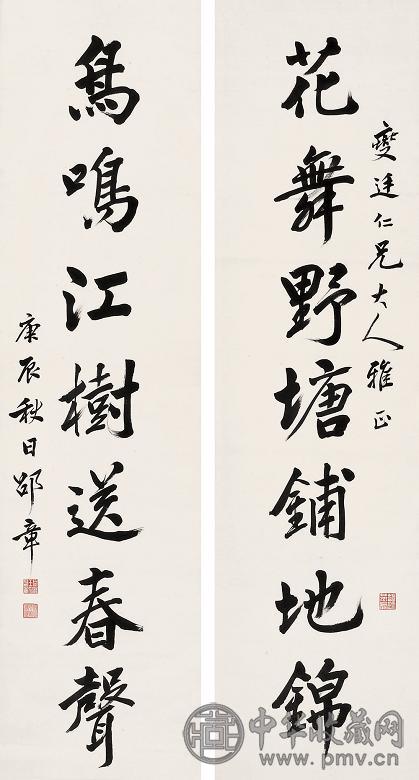 燮廷仁兄大人雅正
花舞野塘鋪地錦
鳥鳴江樹送春聲
庚辰秋日邵章
中华收藏网
www.pmv.cn